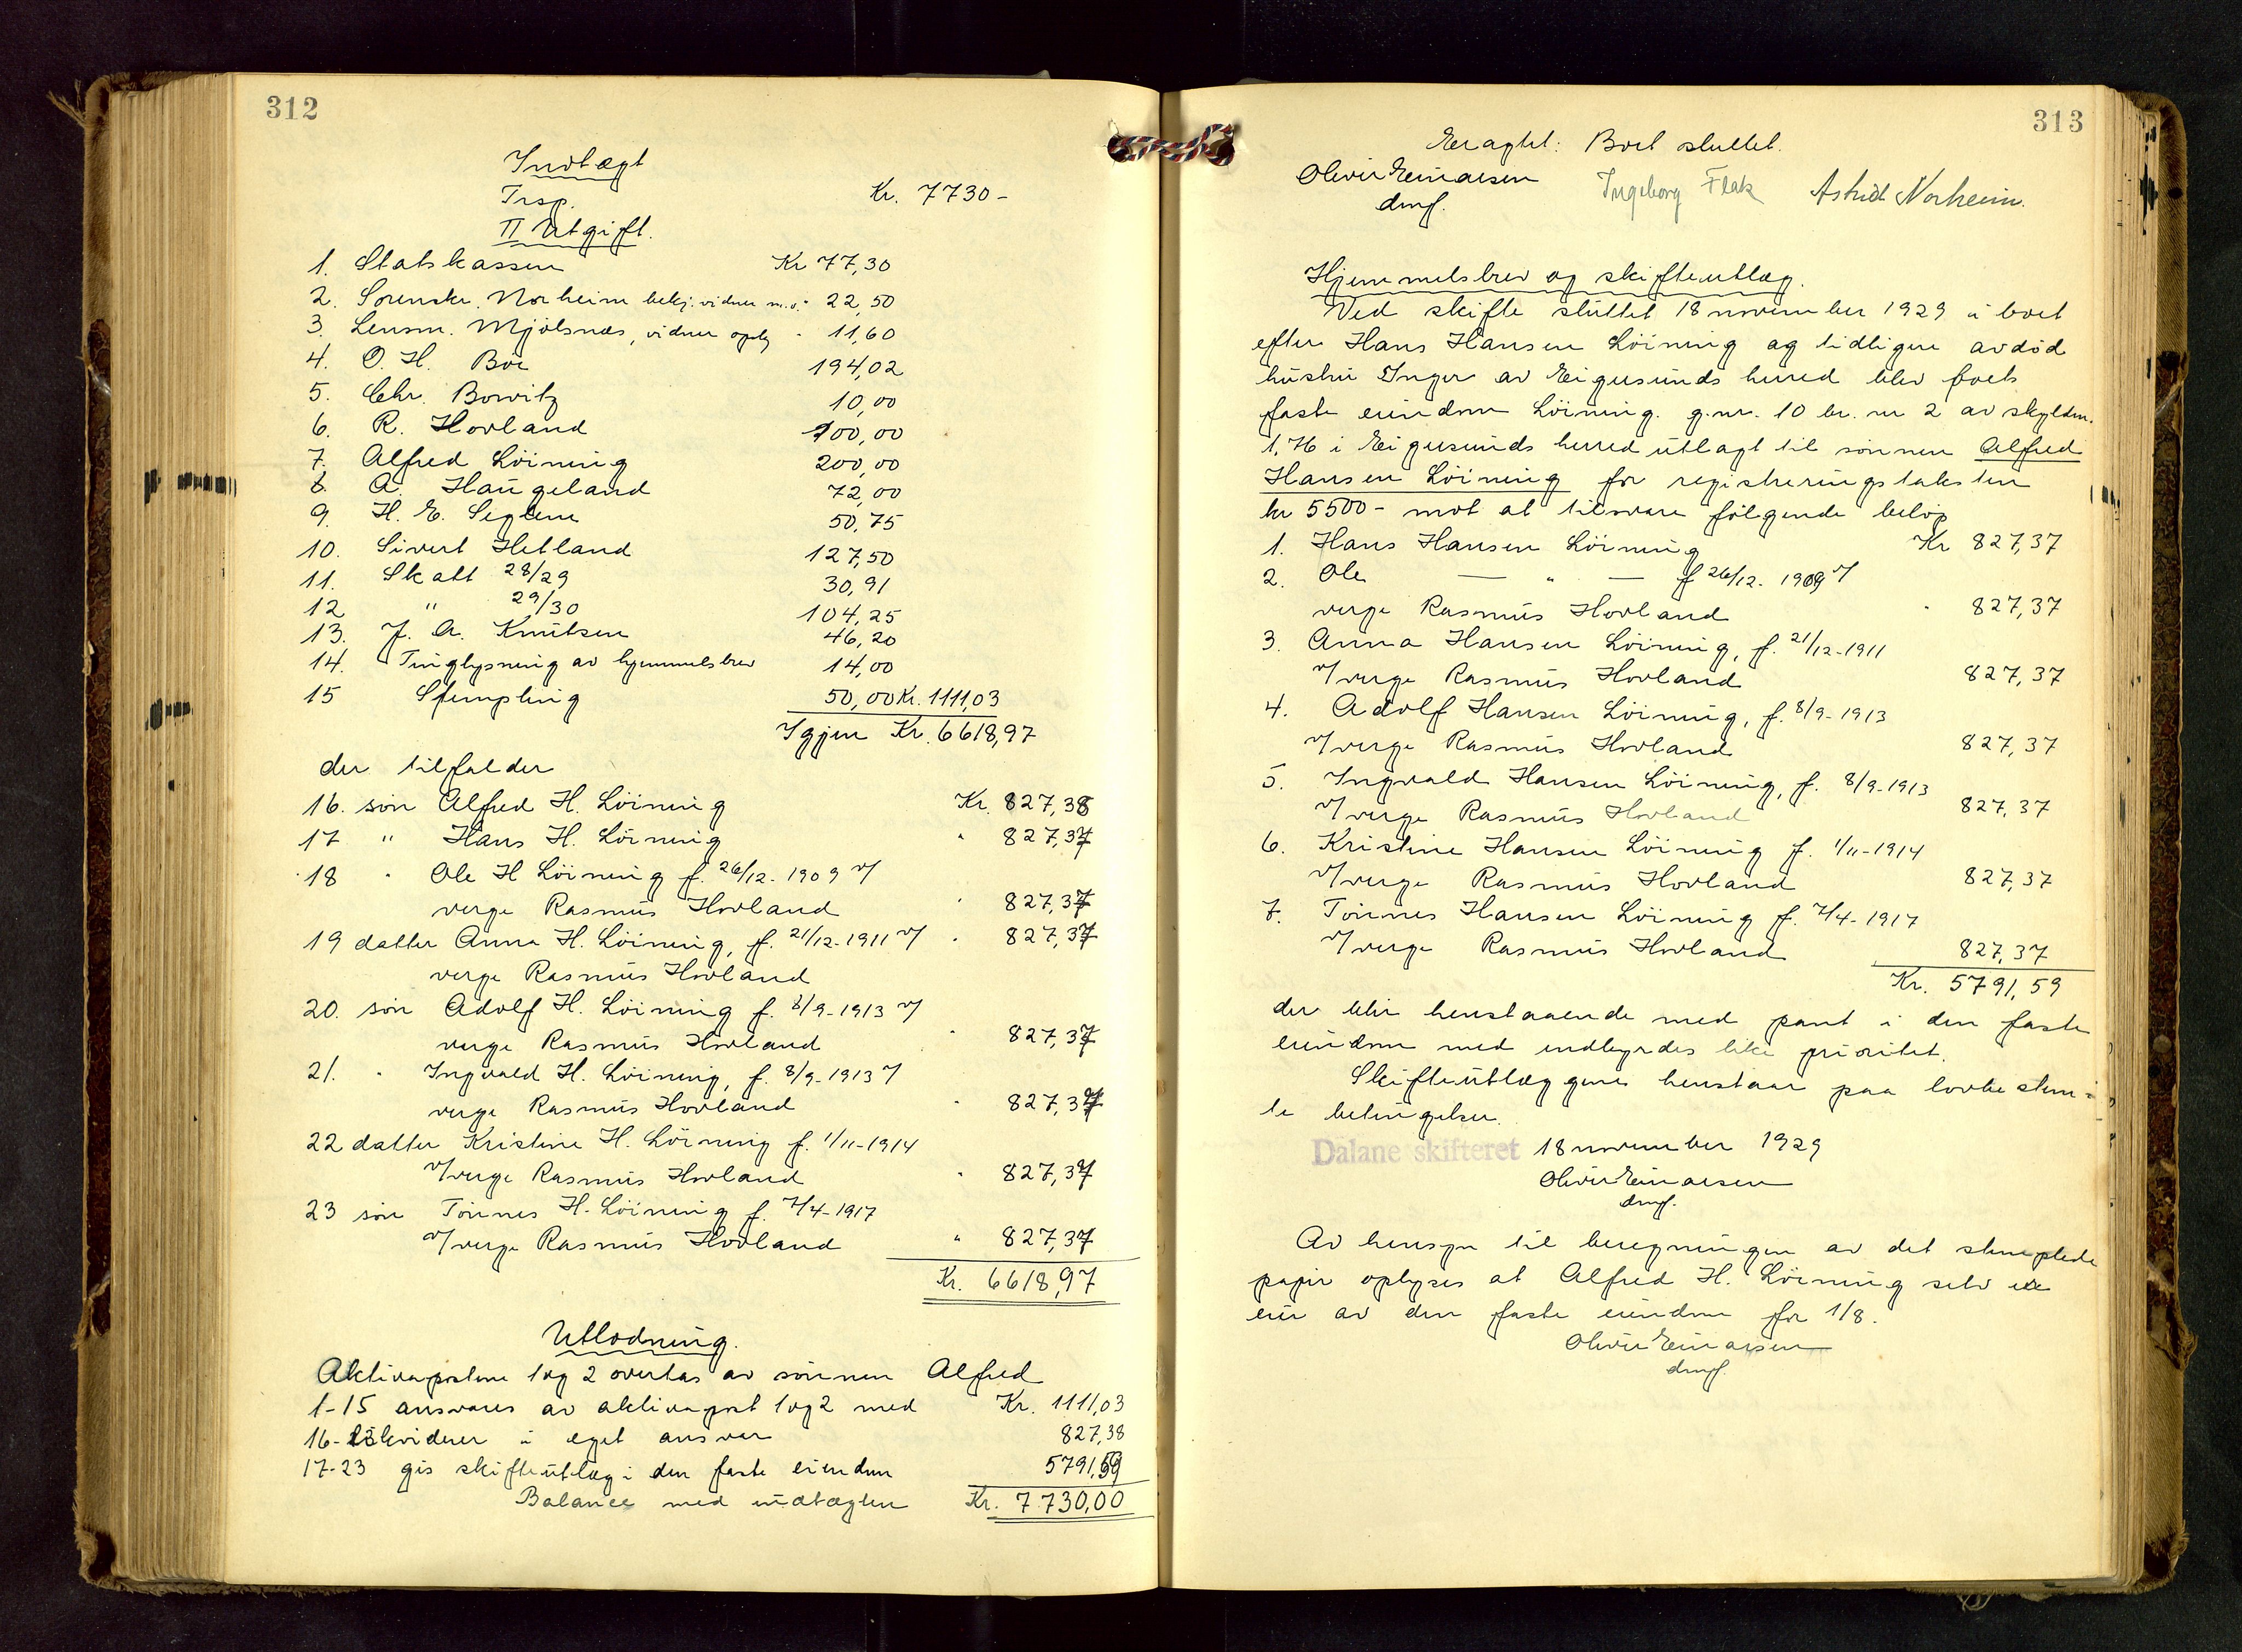 312
Indtægt
Trsp. Kr. 7730-
II Utgift.
1. Statskassen Kr 77,30
2. Sorenskr. Norheim bekj. vidner m.v. " 22,50
3. Lensm. Mjölsnæs, vidner oplg - 11,60
4. O. H. Böe 194,02
5. Chr. Bowitz 10,00
6. R. Hovland 100,00
7. Alfred Löining 200,00
8. A. Haugeland 72,00
9. H. E. Seglem 50,75
10. Sivert Hetland 127,50
11. Skatt 28/29 30,91
12 " 29/30 104,25
13. J. A. Knutsen 46,20
14. Tinglysning av hjemmelsbrev 14,00
15 Stempling 50,00 Kr. 1111,03
Igjen Kr. 6618,97
der tilfalder
16. sön Alfred H. Löining Kr. 827,38
17 " Hans H. Löining " 827,37
18 " Ole H Löining f. 26/12-1909 v/
verge Rasmus Hovland " 827,37
19 datter Anna H. Löining, f. 21/12-1911 v/ " 827,37
verge Rasmus Hovland
20. sön Adolf H. Löining f. 8/9-1913 v/
verge Rasmus Hovland " 827,37
21. " Ingvald H. Löining, f. 8/9-1913 v/
verge Rasmus Hovland " 827,37
22 datter Kristine H. Löining f. 1/11-1914
v/verge Rasmus Hovland " 827,37
23 sön Tönnes H. Löining f. 7/4-1917
v/verge Rasmus Hovland " 827,37
Kr. 6618,97
Utlodning.
Aktivapostene 1 og 2 overtas av sönnen Alfred
1-15 ansvares av aktivapost 1 og 2 med Kr. 1111,03
16- likviderer i eget ansvar 827,38
17-23 gis skifteutlæg i den faste eiendom 5791,59
Balance med indtægten Kr. 7.730,00
313
Eragtet: Boet sluttet.
Olivir Einarsen Ingeborg Flak Astrid Norheim.
dmf.
Hjemmelsbrev og skifteutlæg.
Ved skifte sluttet 18 november 1929 i boet
efter Hans Hansen Löining og tidligere avdöd
hustru Inger av Eigersunds herred blev boets
faste eiendom Löining. g.nr. 10 br. nr 2 av skyldm.
1,76 i Eigersunds herred utlagt til sönnen Alfred
Hansen Löining for registreringstaksten
kr 5500- mot at tilsvare fölgende belöp
1. Hans Hansen Löining Kr 827,37
2. Ole — " — f 26/12. 1909 v/
verge Rasmus Hovland " 827,37
3. Anna Hansen Löining, f. 21/12-1911
v/verge Rasmus Hovland 827,37
4. Adolf Hansen Löining, f. 8/9-1913
v/verge Rasmus Hovland 827,37
5. Ingvald Hansen Löining, f. 8/9-1913
v/verge Rasmus Hovland 827,37
6. Kristine Hansen Löining f. 1/11-1914
v/verge Rasmus Hovland 827,37
7. Tönnes Hansen Löining f. 7/4-1917
v/verge Rasmus Hovland 827,37
Kr. 5791,59
der blir henstaaende med pant i den faste
eiendom med indbyrdes like prioritet.
Skifteutlæggene henstaar paa lovbestem-
te betingelser.
Dalane skifteret 18 november 1929
Olivir Einarsen
dmf.
Av hensyn til beregningen av det stemplede
papir oplyses at Alfred H. Löining selv er
eier av den faste eiendom for 1/8.
Olivir Einarsen
dmf.